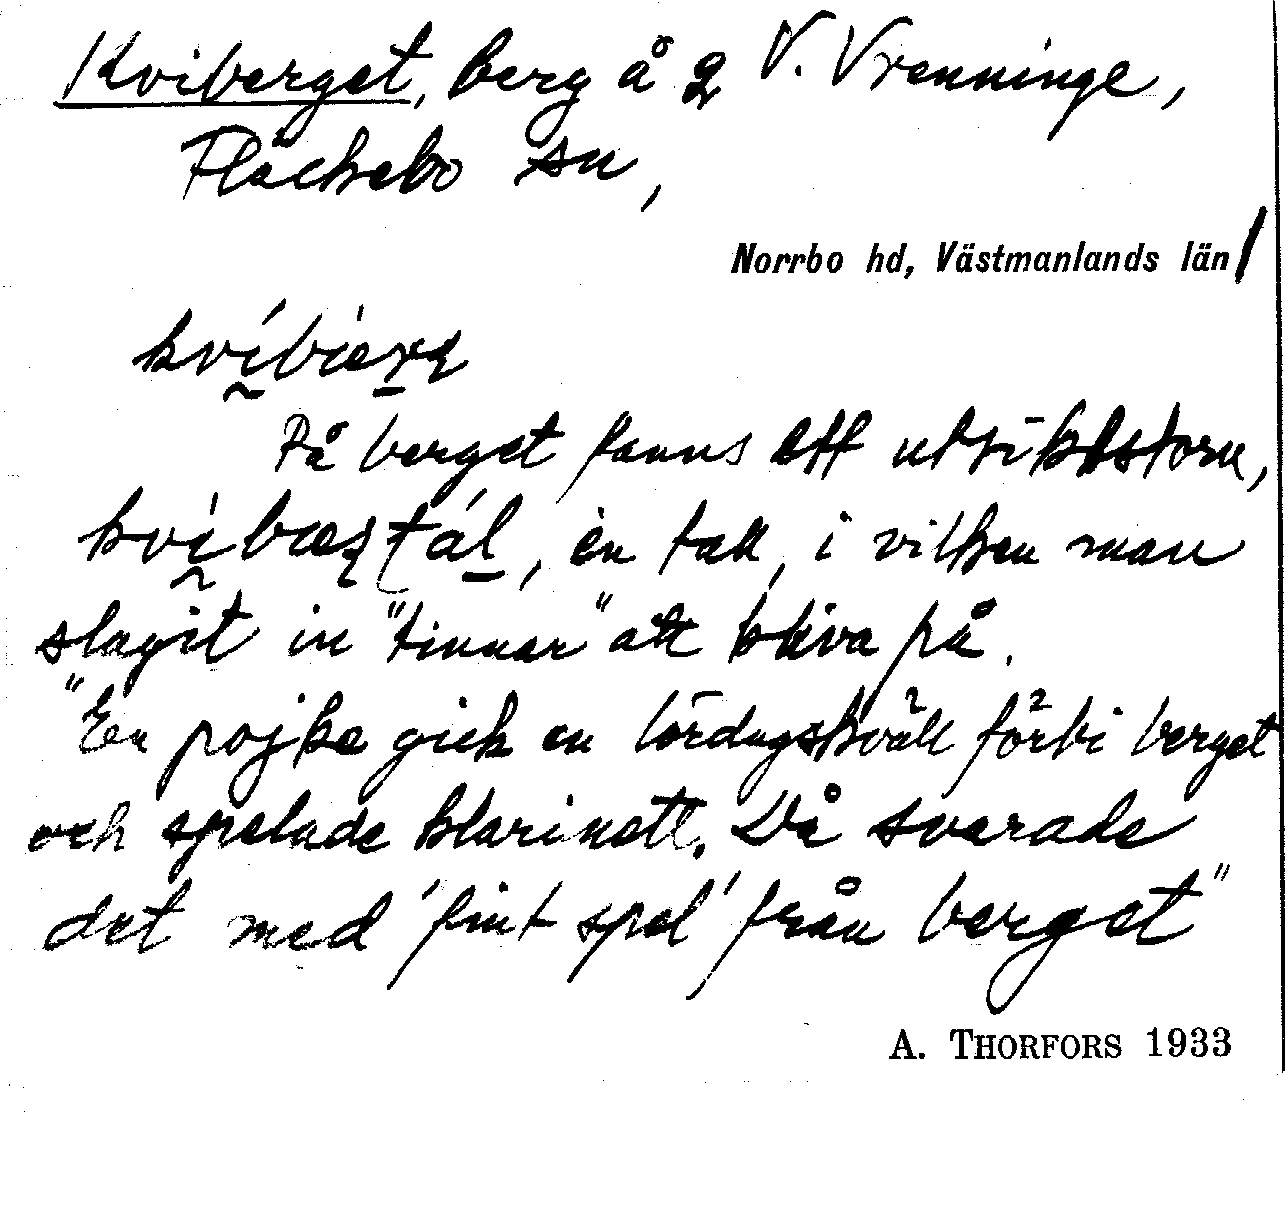 Kviberget, berg å g V. Vrenninge,
Fläckebo sn,
Norrbo hd, Västmanlands län
På berget fanns ett utsiktstorn,
en tall, i vilken man
slagit in "tinnar" att kliva på.
"En pojke gick en lördagskväll förbi berget
och spelade klarinett. Då svarade
det med 'fint spel' från berget"
A. THORFORS 1933